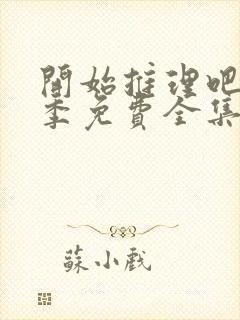 開始推理吧
季免費全集
蘇小戲